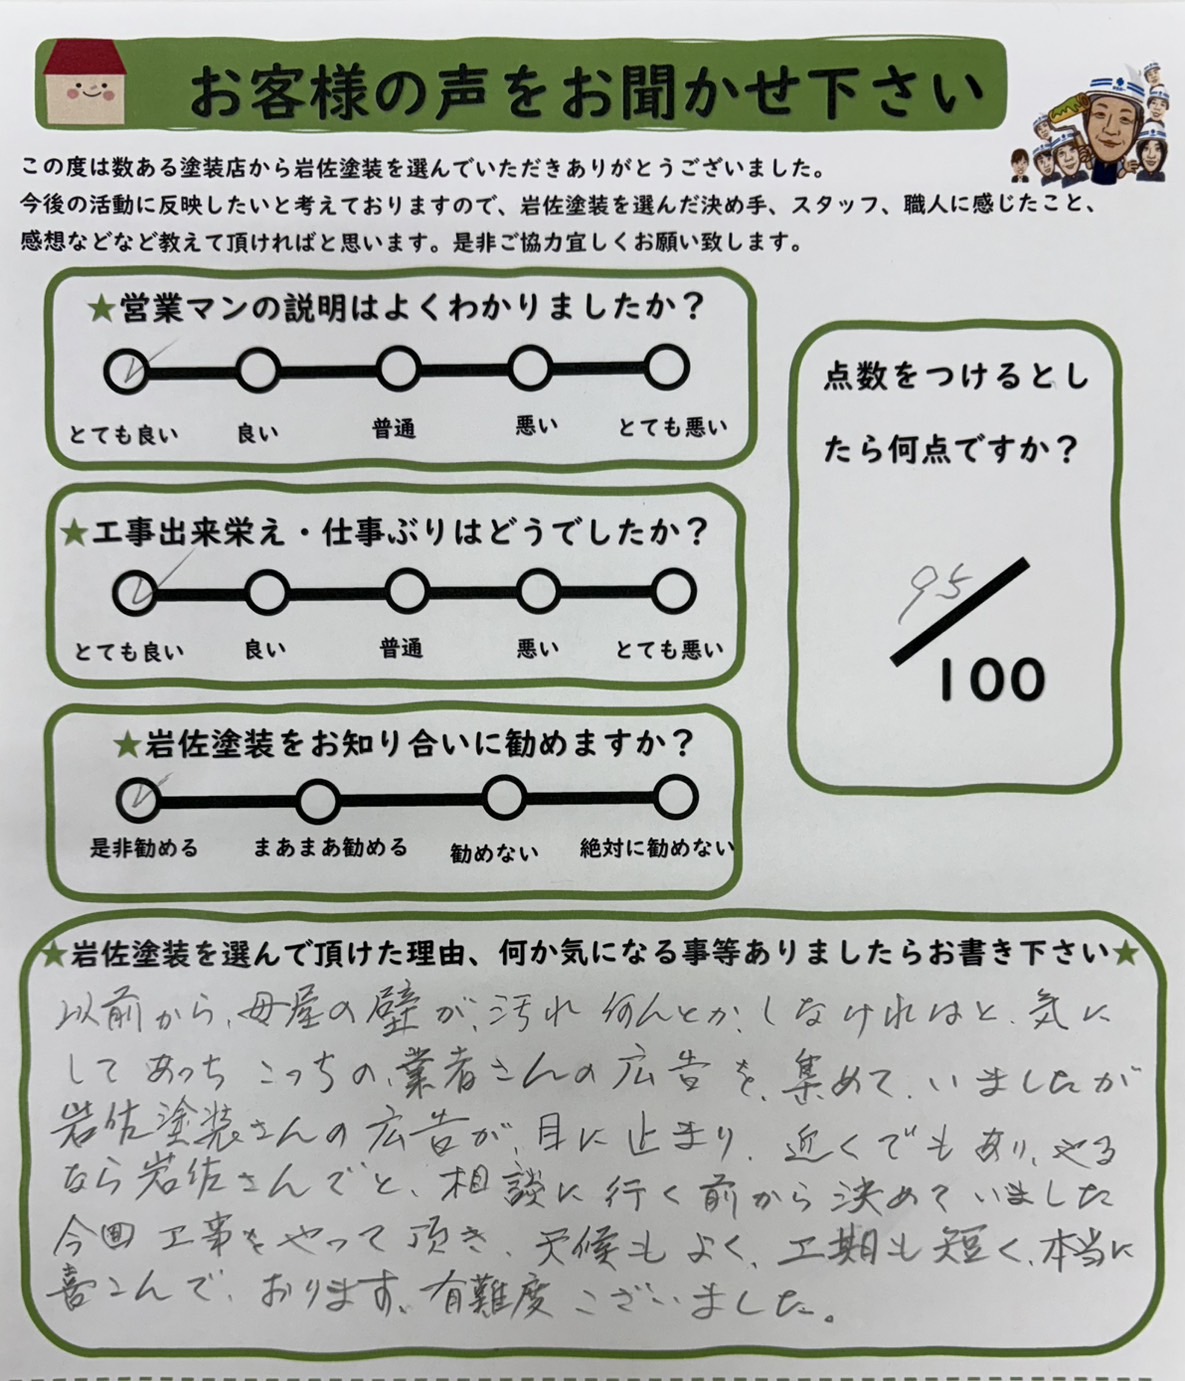 お客様の声をお聞かせ下さい
この度は数ある塗装店から岩佐塗装を選んでいただきありがとうございました。
今後の活動に反映したいと考えておりますので、岩佐塗装を選んだ決め手、スタッフ、職人に感じたこと、
感想などなど教えて頂ければと思います。是非ご協力宜しくお願い致します。
★営業マンの説明はよくわかりましたか？
とても良い 良い 普通 悪い とても悪い
★工事出来栄え・仕事ぶりはどうでしたか？
とても良い 良い 普通 悪い とても悪い
★岩佐塗装をお知り合いに勧めますか？
是非勧める まあまあ勧める 勧めない 絶対に勧めない
点数をつけるとし
たら何点ですか？
95
100
★岩佐塗装を選んで頂けた理由、何か気になる事等ありましたらお書き下さい★
以前から、母屋の壁が、汚れ 何んとか、しなければと、気に
して あっち こっちの、業者さんの広告を、集めて、いましたが
岩佐塗装さんの広告が、目に止まり、近くでもあり、やる
なら岩佐さんでと、相談に行く前から決めていました
今回 工事をやって頂き、天候もよく、工期も短く、本当に
喜こんで、おります、有難度ございました。